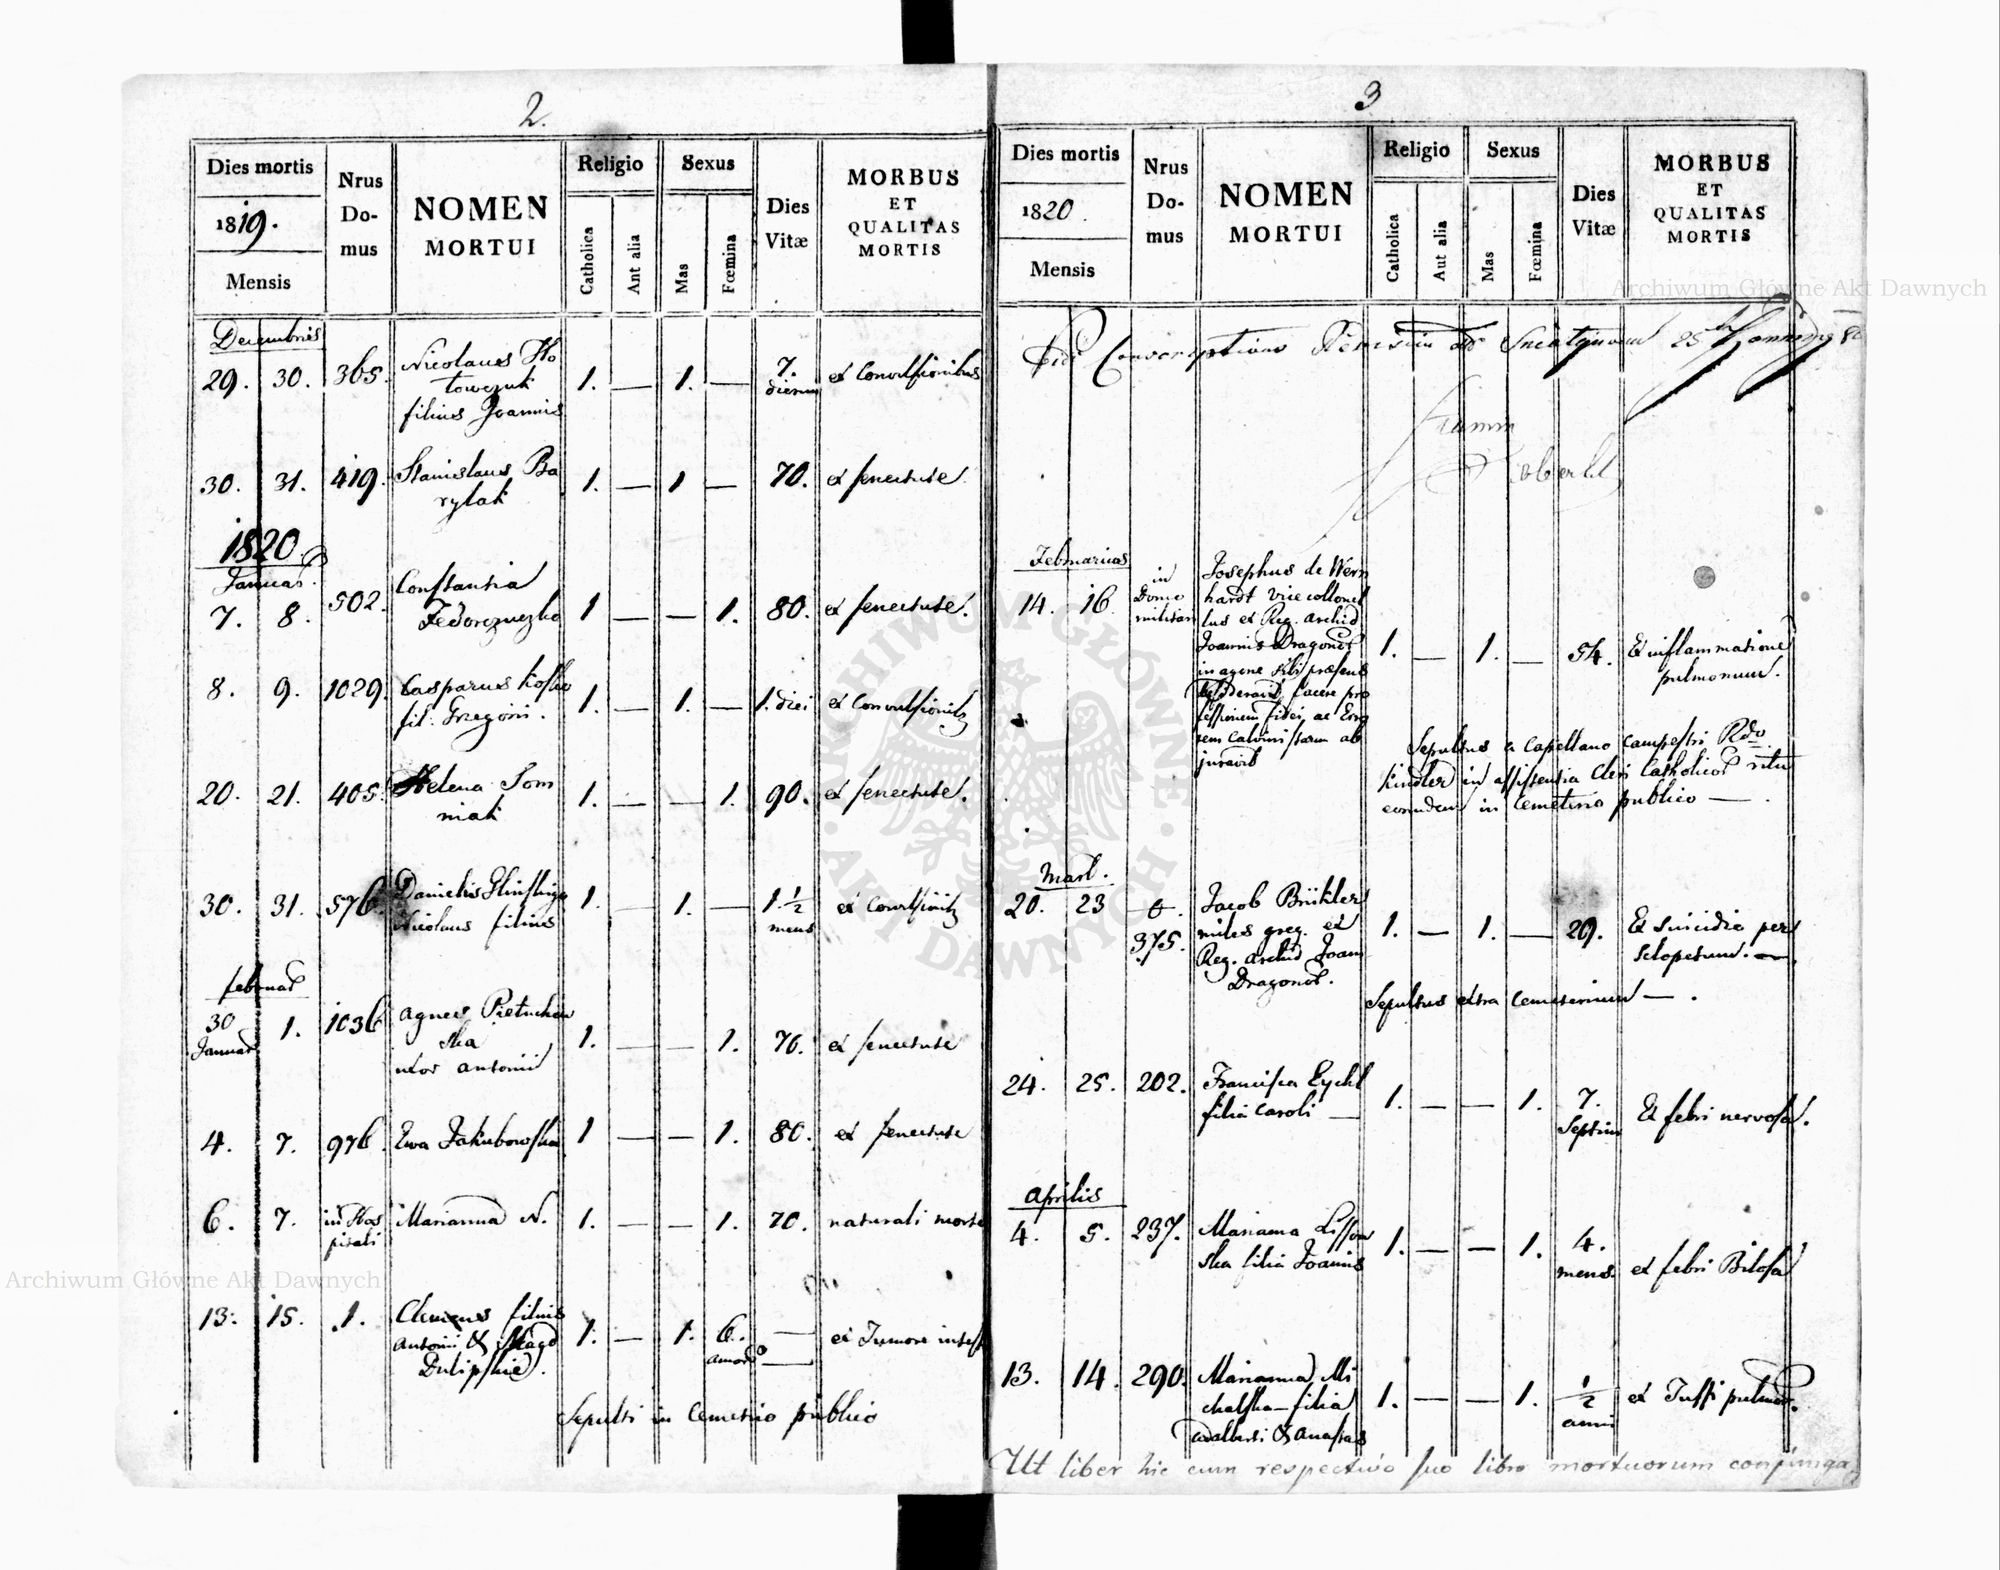 2.
Dies mortis
1819.
Mensis
Nrus
Do-
mus
NOMEN
MORTUI
Religio
Catholica
Aut alia
Sexus
Mas
Fœmina
Dies
Vitæ
MORBUS
ET
QUALITAS
MORTIS
Decembris
29. 30. 365. Nicolaus Ho
towczuk
filius Joannis
1. — 1. — 7.
dierum
ex Convulsionibus
30. 31. 419. Stanislaus Ba
rylak
1. — 1 — 70. ex senectute.
1820.
Januar.
7. 8. 502. Constantia
1 — — 1. 80. ex senectute.
8. 9. 1029. Casparus
fil. Gregorii.
1. — 1. — 1. diei
20. 21. 405. Helena Tom
niak
1. — — 1. 90. ex senectute.
30. 31. 576. Danielis
Nicolaus filius
1. — 1. — 1. ½
mens
Februar
30
Januar
1. 1036 Agnes
ska
uxor Antonii
1. — — 1. 76. ex senectute
4. 7. 976. Ewa Jakubowska
1 — — 1. 80. ex senectute
6. 7. in Hos
pitali
Marianna N.
1. — — 1. 70. naturali morte
13. 15. 1. Clemens filius
Antonii & Magd
1. — 1. 6. —
ex Tumore
Sepulti in Cemetrio publico
3
Dies mortis
1820.
Mensis
Nrus
Do-
mus
NOMEN
MORTUI
Religio
Catholica
Aut alia
Sexus
Mas
Fœmina
Dies
Vitæ
MORBUS
ET
QUALITAS
MORTIS
Conscriptions Revision
Februarius
14. 16. in
Domo
militari
Josephus de Wern
hardt vice collonel
lus ex Reg. Archid
Joannis Dragonor
in agone sibi præsens
desideravit facere pro
fessionem fidei, ac Erro
rem Calvinistarum ab
juravit
1. — 1. — 54. Ex inflammatione
pulmonum.
Sepultus a Capellano Campestri Rdo
Kindler in assistentia Cleri Catholicor ritus
eorundem in Cemeterio publico —.
Mart.
20. 23
375.
Jacob Brükler
miles greg. ex
Reg. Archid Joan
Dragonor.
1. — 1. — 29. Ex suicidio per
sclopetum. —
Sepultus extra Cemeterium —.
24. 25. 202. Francisca Eychl
filia Caroli —
1. — — 1. 7.
Septim
Ex febri nervosa.
Aprilis
4. 5. 237. Marianna Lissow
ska filia Joannis
1. — — 1. 4.
mens.
ex febri Bilosa
13. 14. 290. Marianna Mi
chalska — filia
Adalberti & Anastas
1. — — 1. ½
anni
ex Tussi pulmon.
Ut liber hic cum respectivo suo libro mortuorum conjunga
Archiwum Główne Akt Dawnych
Archiwum Główne Akt Dawnych
ARCHIWUM GŁÓWNE
· AKT DAWNYCH ·